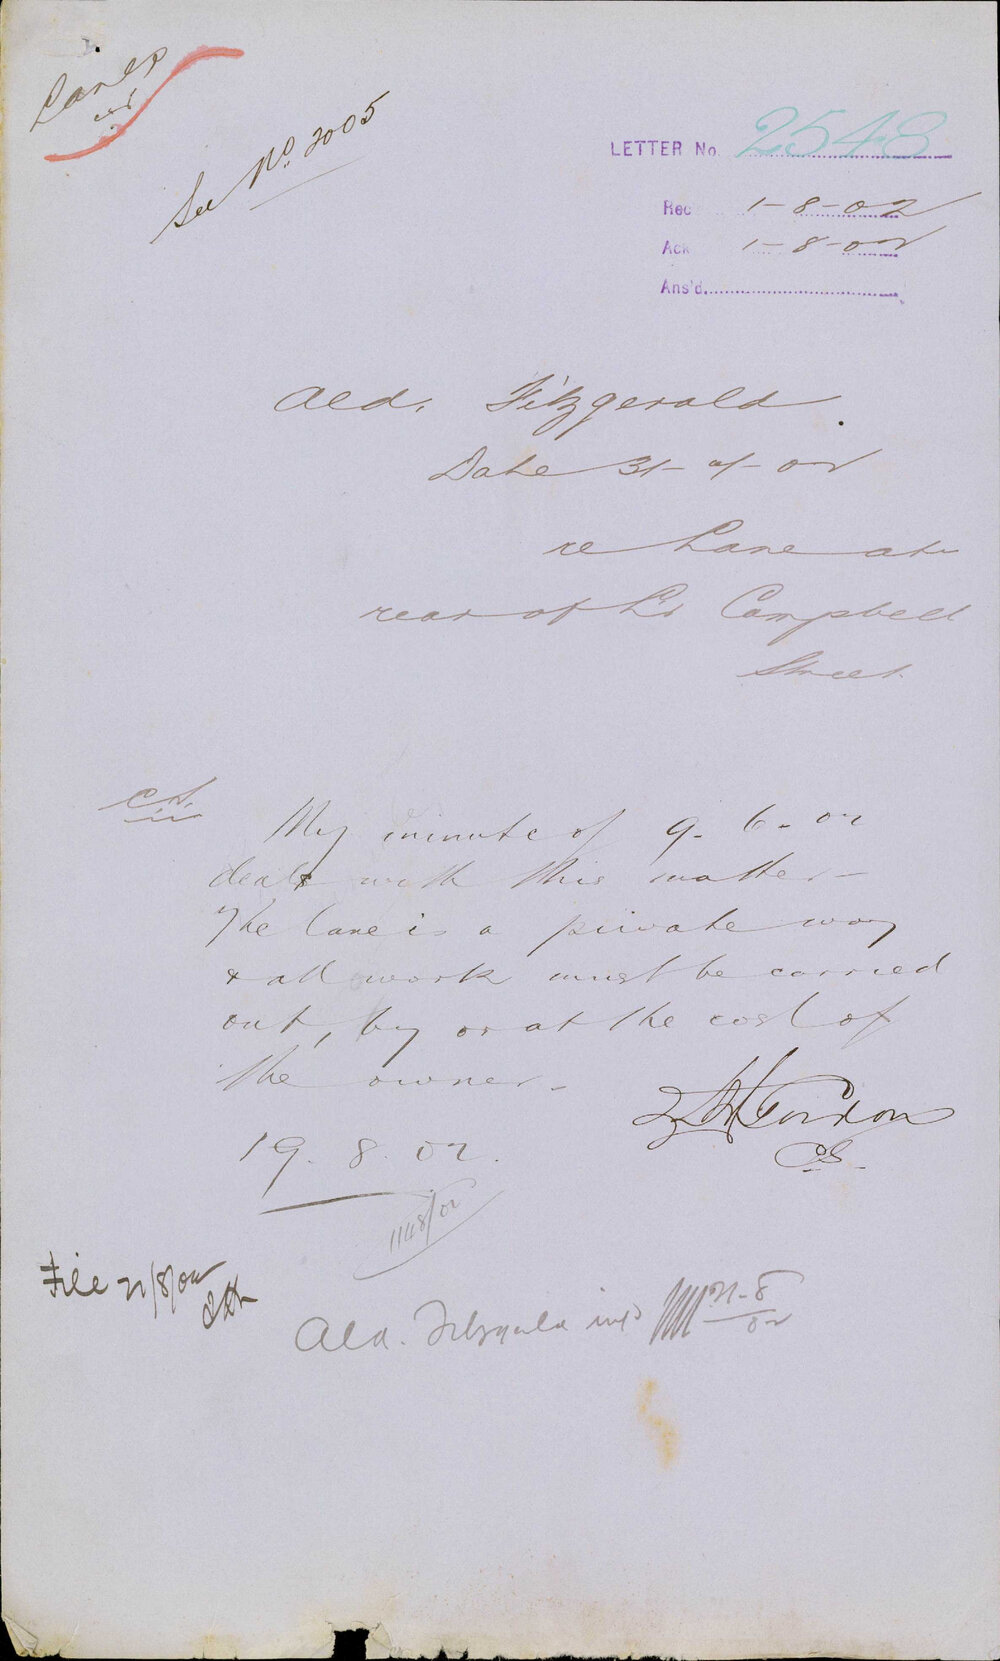 Lanes
See No. 2005
LETTER No. 2548
Rec 1-8-02
Ack 1-8-02
Ans'd.
Ald. Fitzgerald.
Date 31-7-02
re Lane at
rear of Lr Campbell
Street.
C.S.
My minute of 9-6-02
dealt with this matter-
The lane is a private way
& all work must be carried
out, by or at the cost of
the owner-
Gordon
CS.
19.8.02.
1148/02
File 21/8/02
Ald. Fitzgerald infd 21-8
02